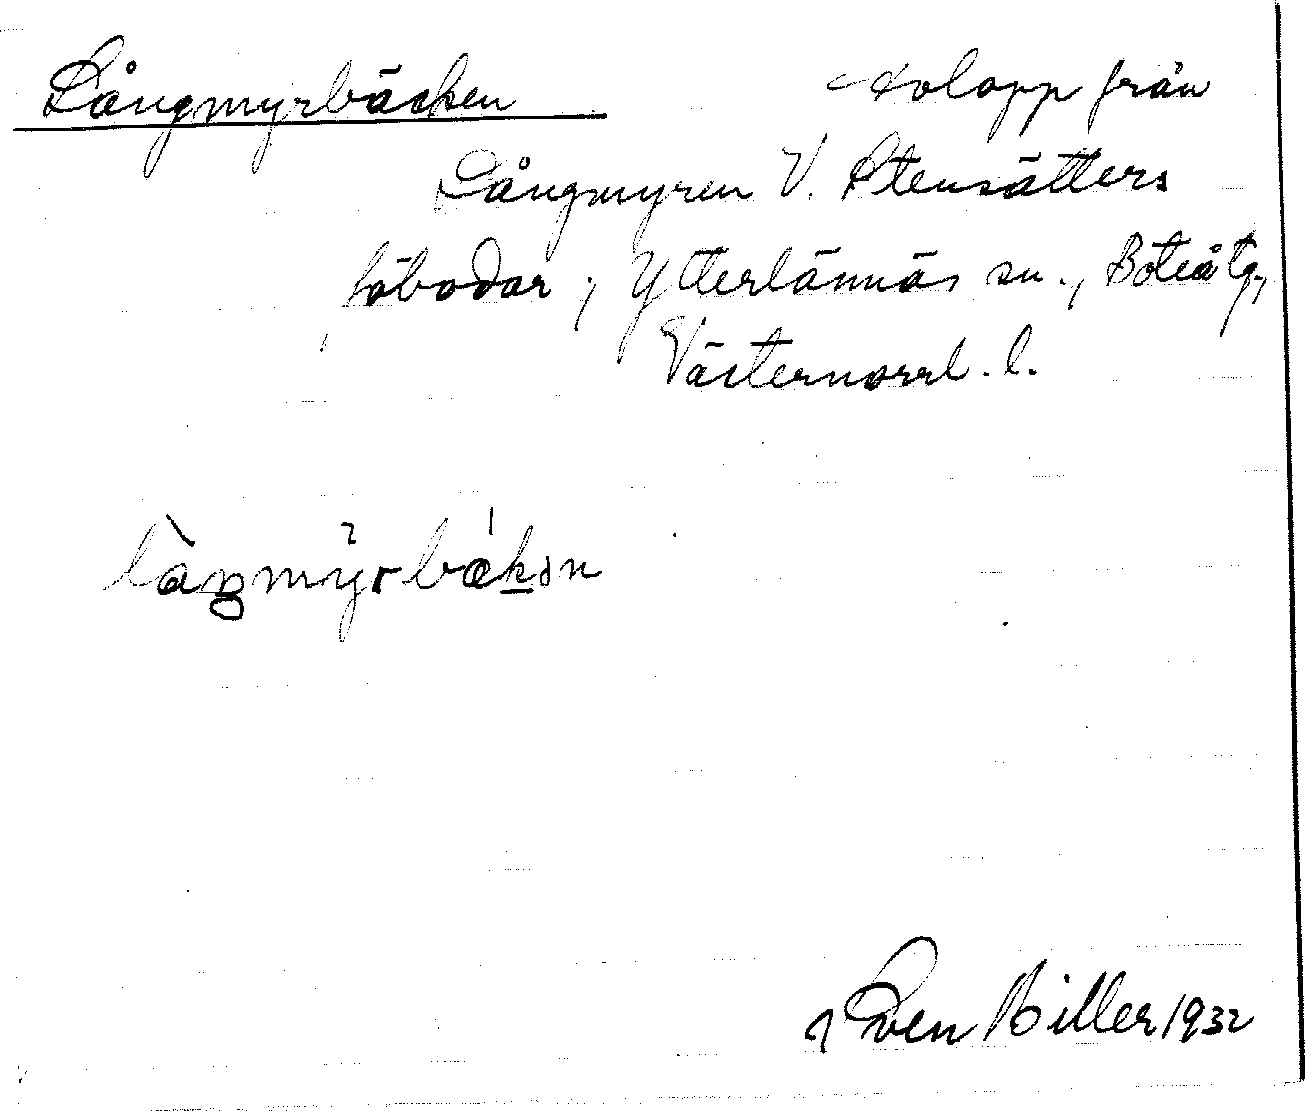 Långmyrbäcken Avlopp från
Långmyren V. Stensätters
fäbodar, Ytterlännäs sn., Boteå tg,
Västernorrl. l.
làŋmy̆rbǽkən
Sven Biller 1932